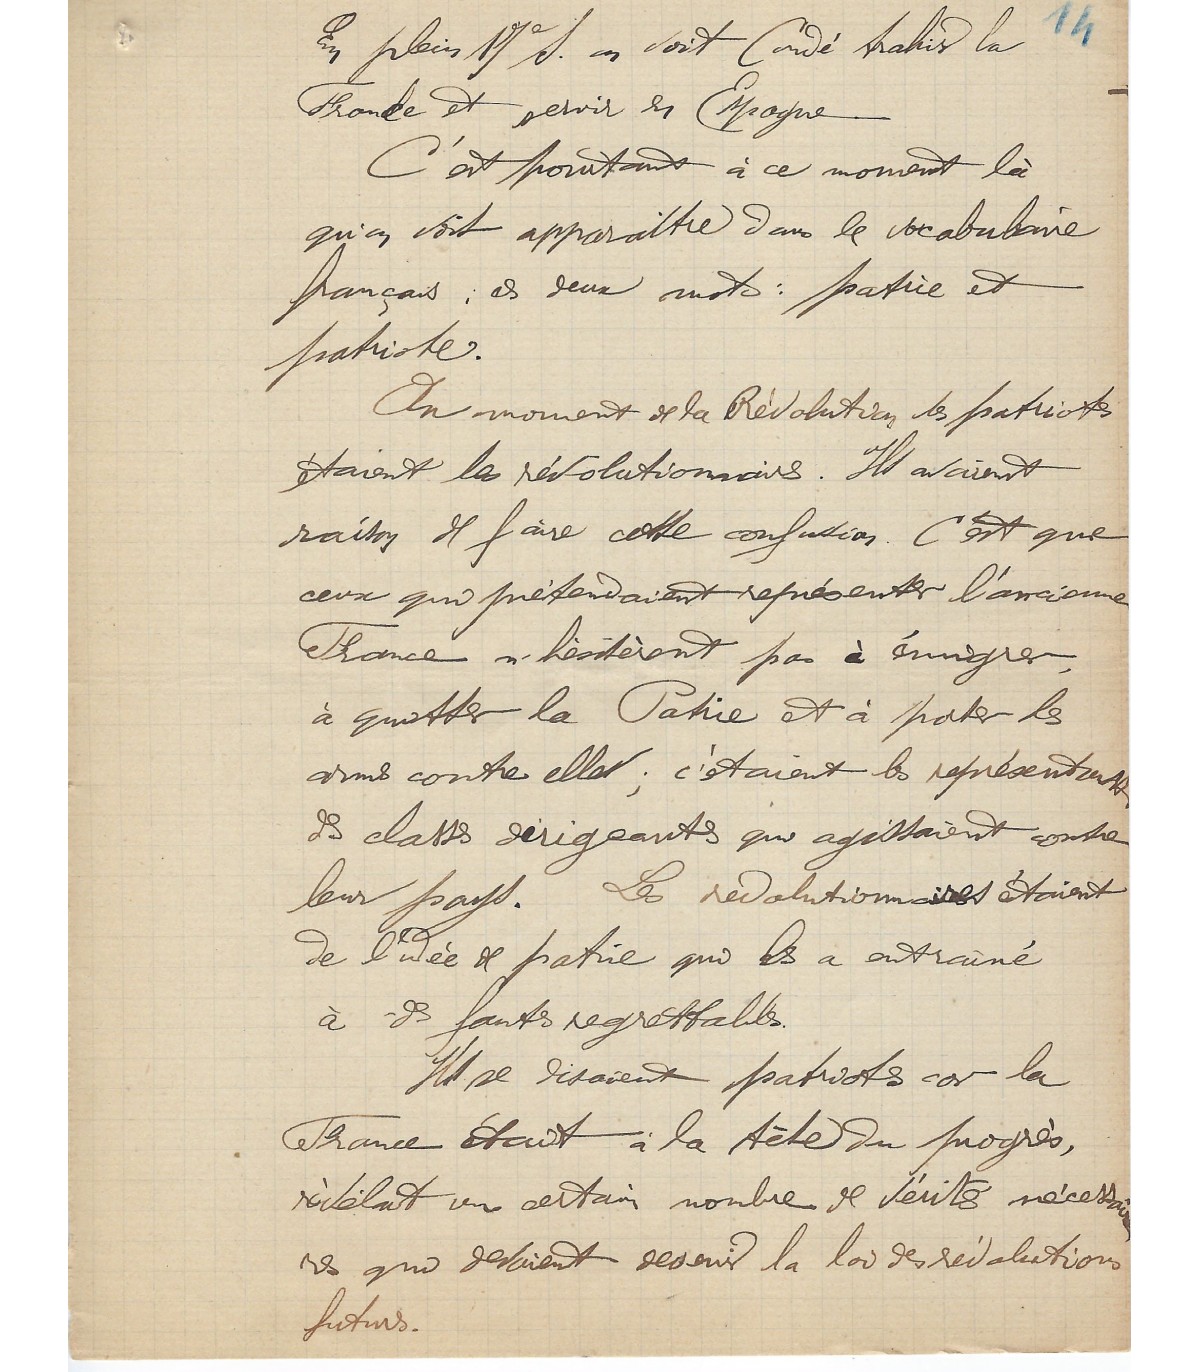 14
En plein 17e s. on voit Condé trahir la
France et servir en Espagne
C'est pourtant à ce moment là
qu'on voit apparaître dans le vocabulaire
français ; ces deux mots : patrie et
patriote.
Au moment de la Révolution les patriotes
étaient les révolutionnaires. Ils avaient
raison de faire cette confusion. C'est que
ceux qui prétendaient représenter l'ancienne
France n'hésitèrent pas à émigrer,
à quitter la Patrie et à porter les
armes contre elle ; c'étaient les représentants
des classes dirigeantes qui agissaient contre
leur pays. Les révolutionnaires étaient
de l'idée de patrie qui les a entraîné
à des fautes regrettables.
Ils se disaient patriotes car la
France était à la tête du progrès,
révélait un certain nombre de vérités nécessai
res qui devaient devenir la loi des révolutions
futures.